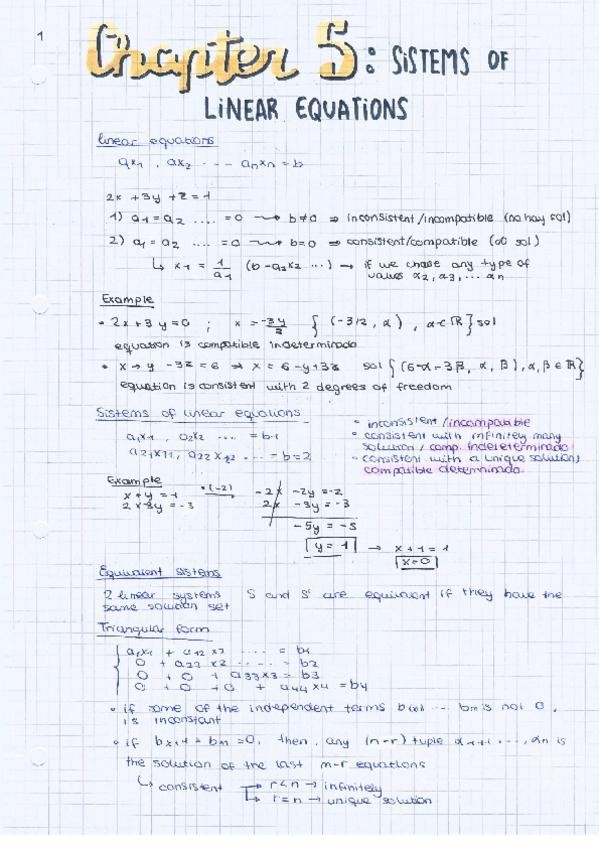 1
Chapter 5: SiSTEMS OF
LiNEAR EQUATIONS
linear equations
ax1 , ax2 ··· – anxn = b
2x + 3y + z = 1
1) a1 = a2 .... = 0 ⟿ b≠0 ⇒ inconsistent/incompatible (no hay sol)
2) a1 = a2 .... = 0 ⟿ b=0 ⇒ consistent/compatible (∞ sol)
↳ x1 = 1/a1 (b - a2x2 ···) → if we chose any type of
values α2, α3, ··· αn
Example
• 2x + 3y = 0 ; x = -3y/2 { (-3/2, α) , α∈ℝ } sol
equation is compatible indeterminado
• x + y - 3z = 6 ⇒ x = 6 - y + 3z sol { (6-α-3β, α, β), α, β ∈ ℝ }
equation is consistent with 2 degrees of freedom
Sistems of linear equations
• inconsistent / incompatible
a1x1 , a2x2 ... = b1
• consistent with infinitely many
solution / comp. indeterminado
a21x11, a22x22 ... = b=2
• consistent with a unique solution,
compatible determinado.
Example
x + y = 1 ·(-2) -2x -2y = -2
2x - 3y = -3 2x -3y = -3
-5y = -5
y = 1 → x + 1 = 1
x = 0
Equivalent sistems
2 linear systems S and S' are equivalent if they have the
same solution set
Triangular form
a1x1 + a12x2 .... = b1
0 + a22x2 ..... = b2
0 + 0 + a33x3 = b3
0 + 0 + 0 + a44x4 = b4
• if some of the independent terms ... bm is not 0,
is inconstant
• if ... bm = 0, then, any (n-r) tuple αr+1 ..., αn is
the solution of the last m-r equations
↳ consistent → r<n → infinitely
↳ r=n → unique solution